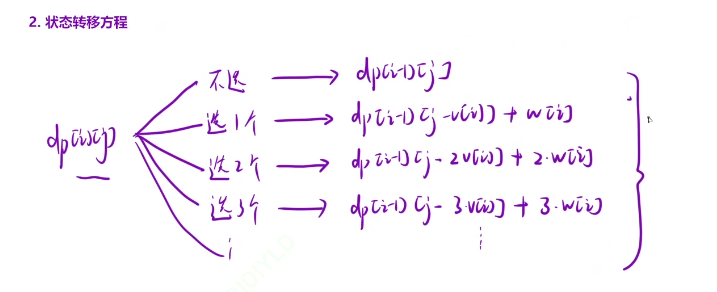 2. 状态转移方程
不选 → dp[i-1][j]
选1个 → dp[i-1][j-v[i]] + w[i]
dp[i][j]
选2个 → dp[i-1][j-2v[i]] + 2·w[i]
选3个 → dp[i-1][j-3·v[i]] + 3·w[i]
⋮ ⋮